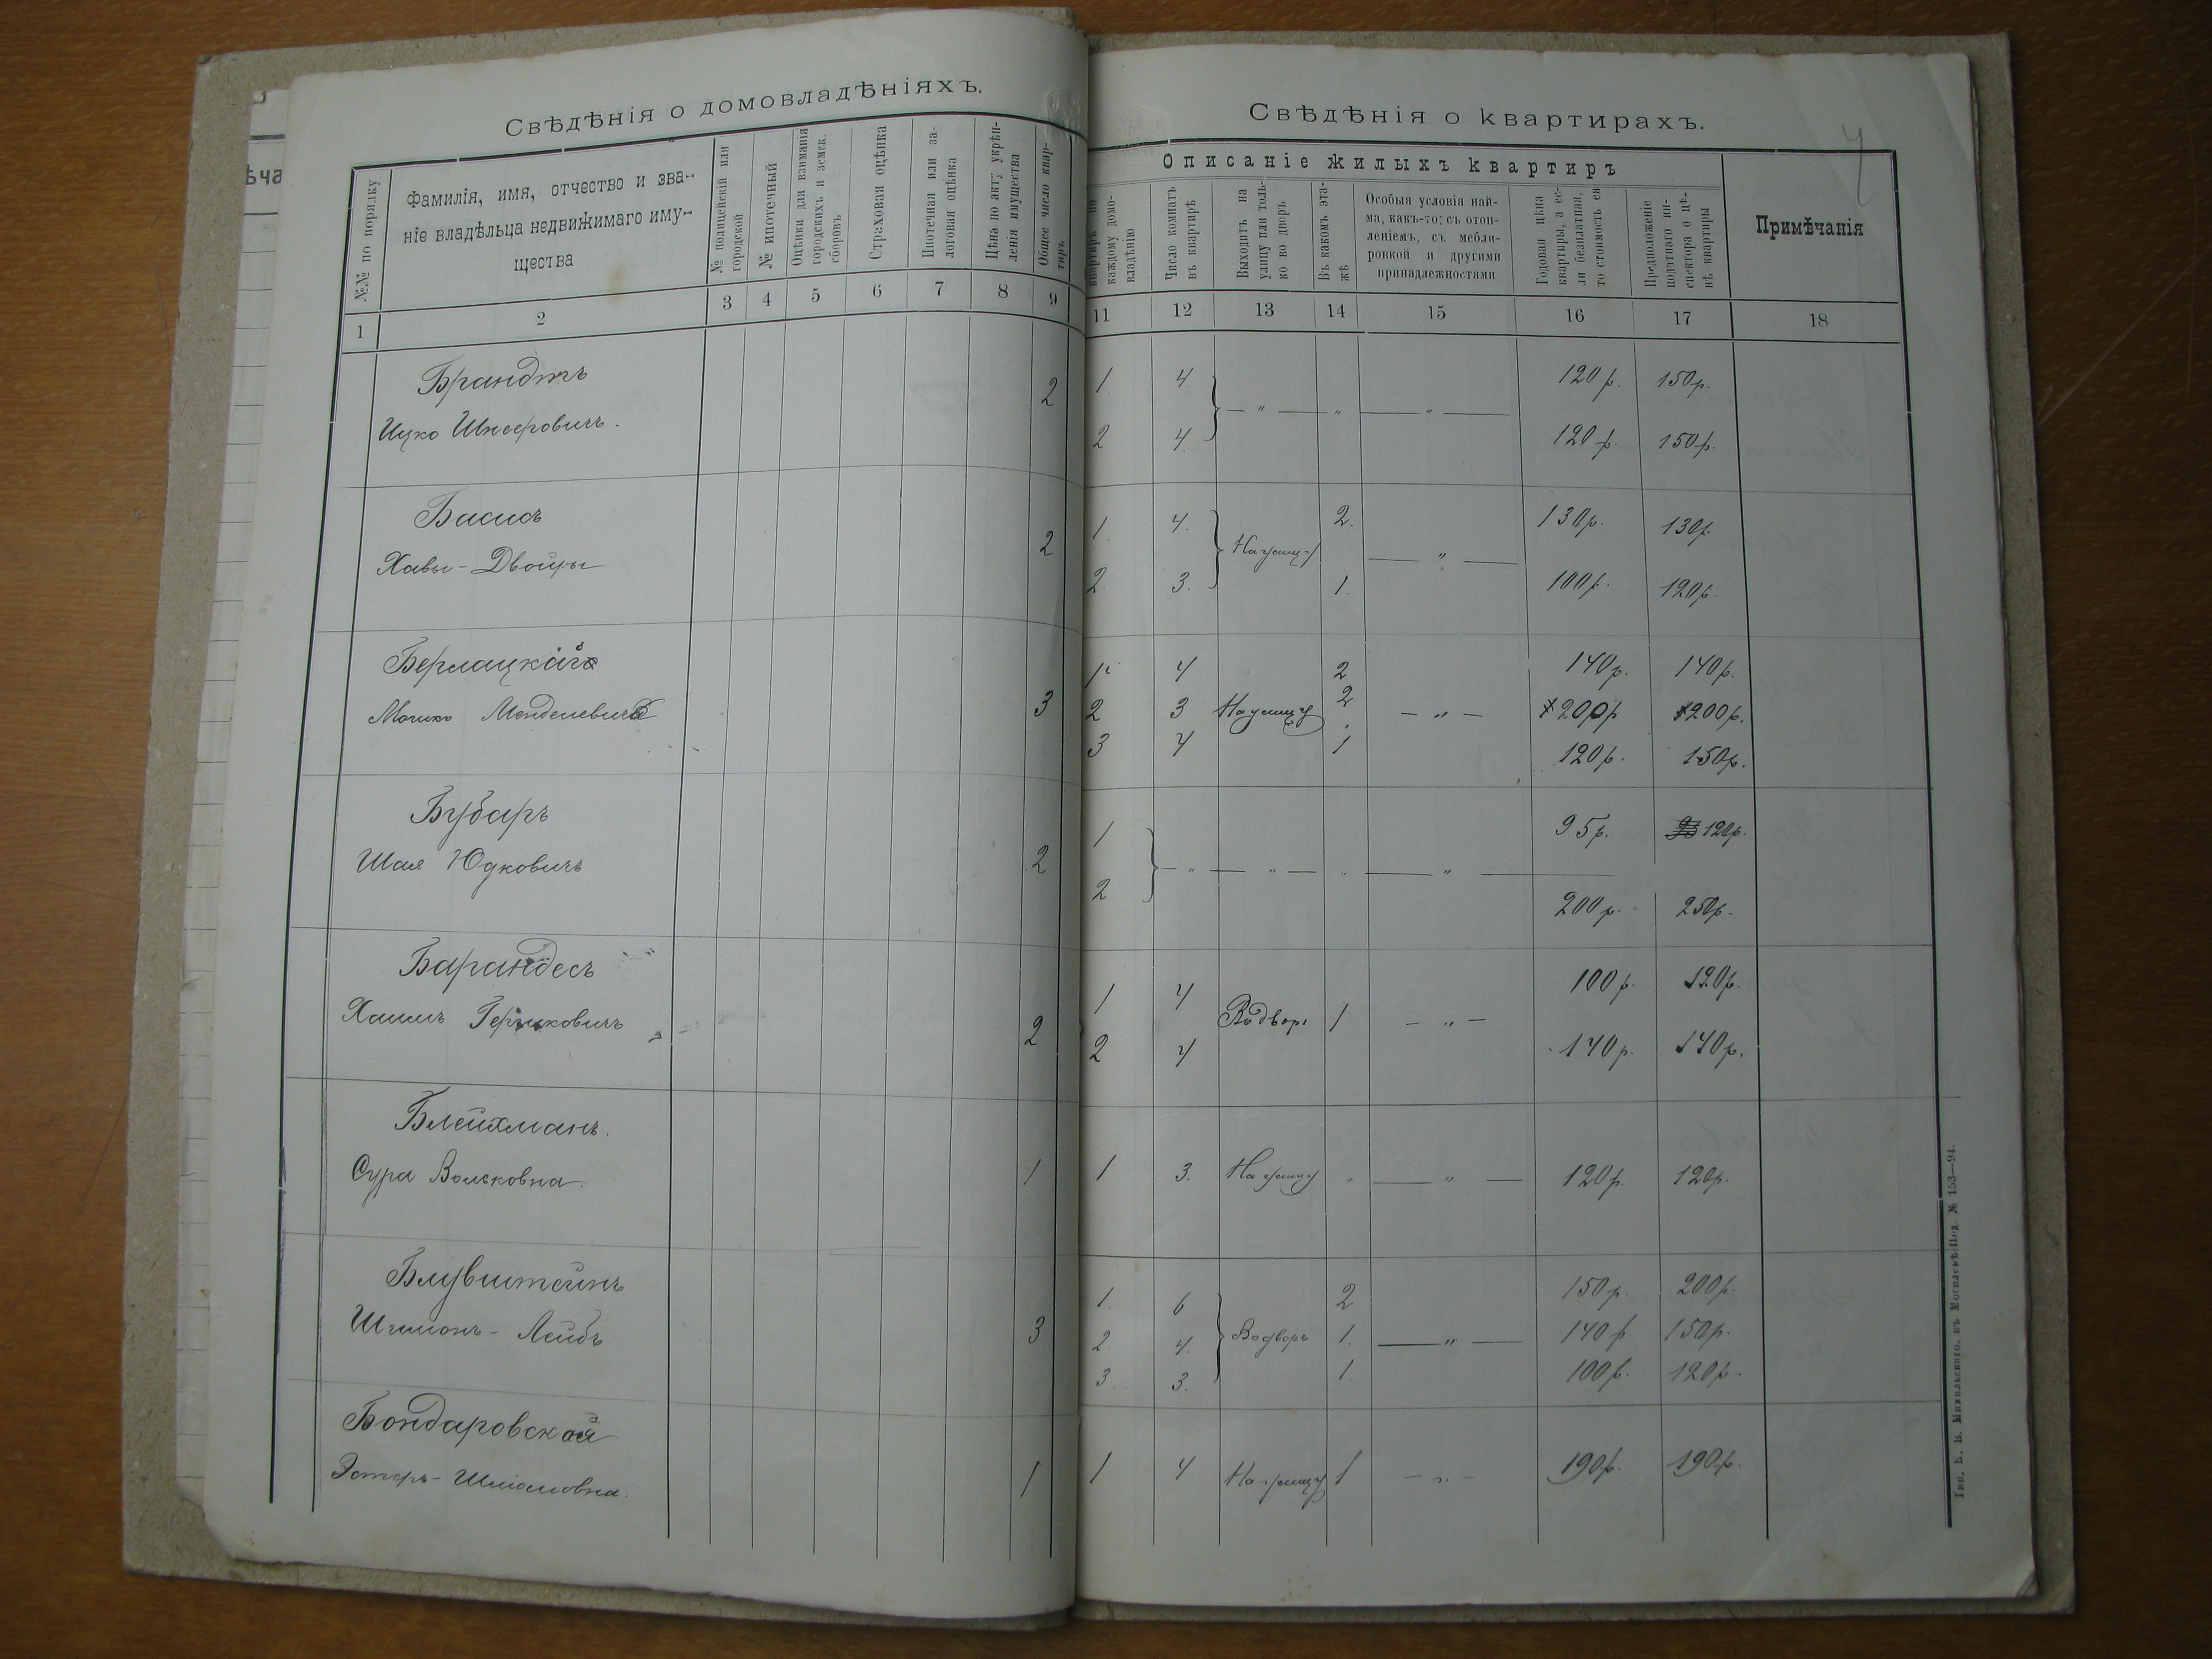 ѣча
Свѣдѣнія о домовладѣніяхъ.
№№ по порядку
Фамилія, имя, отчество и зва-
ніе владѣльца недвижимаго иму-
щества
№ полицейскій или
городской
№ ипотечный
Оцѣнки для взиманія
городскихъ и земск.
сборовъ
Страховая оцѣнка
Ипотечная или за-
логовая оцѣнка
Цѣна по акту укрѣп-
ленія имущества
Общее число квар-
тиръ
1 2 3 4 5 6 7 8 9
Брандтъ
Ицко Шнееровичъ. 2
Басисъ
Хавы-Двойры 2
Берлацкій
Мошко Менделевичъ 3
Бубаръ
Шая Юдковичъ 2
Барандесъ
Хаимъ Гершковичъ 2
Блейхманъ.
Сура Вольковна. 1
Блувштейнъ
Шимонъ-Лейбъ 3
Бондаровская
Эстеръ-Шліомовна. 1
Свѣдѣнія о квартирахъ.
Описаніе жилыхъ квартиръ
квартиръ по
каждому домо-
владѣнію
Число комнатъ
въ квартирѣ
Выходитъ на
улицу или толь-
ко во дворъ
Въ какомъ эта-
жѣ
Особыя условія най-
ма, какъ-то: съ отоп-
леніемъ, съ мебли-
ровкой и другими
принадлежностями
Годовая цѣна
квартиры, а ес-
ли безплатная,
то стоимость ея
Предположеніе
податнаго ин-
спектора о цѣ-
нѣ квартиры
Примѣчанія
11 12 13 14 15 16 17 18
1 4 — " — " — " — 120 р. 150 р.
2 4 120 р. 150 р.
1. 4. На улицу 2. — " — 130 р. 130 р.
2. 3. 1. 100 р. 120 р.
1 4 2 140 р. 140 р.
2 3 На улицу 2 — " — 200 р 200 р.
3 4 1 120 р. 150 р.
1 — " — " — " — " — 95 р. 120 р.
2 200 р. 250 р.
1 4 Во дворъ 1 — " — 100 р. 120 р.
2 4 140 р. 140 р.
1 3. На улицу " — " — 120 р. 120 р.
1. 6 2 150 р. 200 р.
2. 4. Во дворъ 1. — " — 140 р. 150 р.
3. 3. 1. 100 р. 120 р.
1 4 На улицу 1 — " — 190 р. 190 р.
Тип. Михальскаго, въ Могилевѣ-Под. № 153—94.